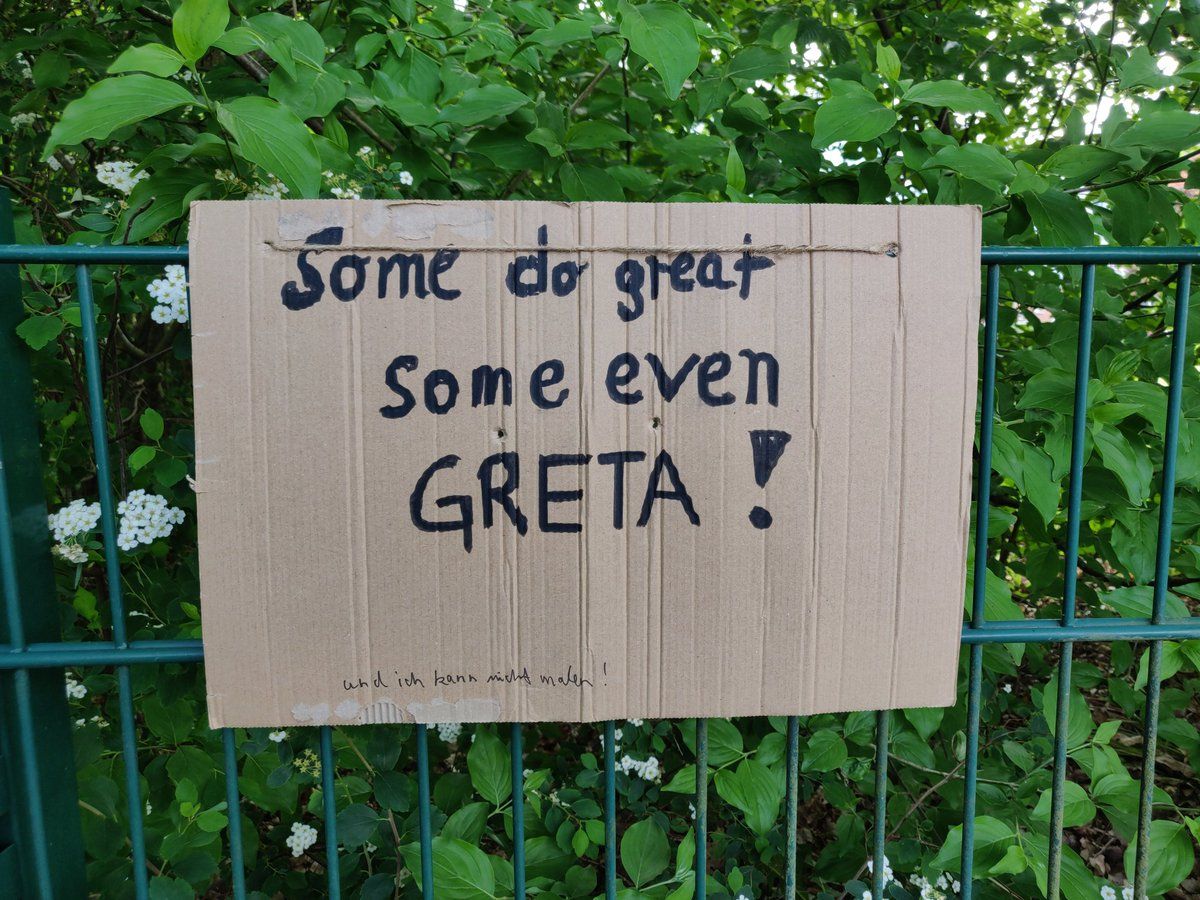 Some do great
some even
GRETA!
und ich kann nicht malen!